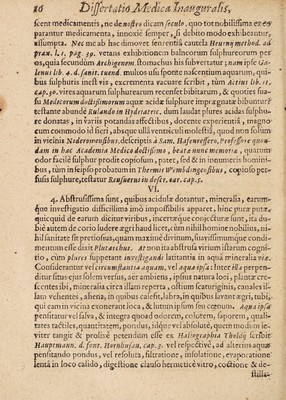 16 Dissertatio Medica Inauguralis,
scent medicamentis, ne de nostro dicam seculo, quo tot nobilissima ex eo
parantur medicamenta, innoxiè semper, si debito modo exhibeantur,
assumpta. Nec me ab hac dimovet sententiâ cautela Heurny method. ad
pag. 39. vetans exhibitionem balneorum sulphureorum per
os, quia secundum Archigenem stomachus his subvertatur; nam ipse Ga-
lenus lib. 4. d. sanit. tuend. multos usu sponte nascentium aquarum, qui-
bus sulphuris inest vis, excrementa vacuare scribit, tum Aetius lib. 11.
cap. 30. vires aquarum sulphurearum recenset bibitarum, & quoties sua-
su Medicorum doctissimorum aquæ acidæ sulphure imprægnatæ bibuntur?
testante abundè Rulando in Hydriatrice. dum laudat plures acidas sulphu-
re donatas, in variis potandas affectibus, docente experientiâ, magno
cum commodo id fieri, absque ullâ ventriculi molestiâ, quod non solum
in vicinis Nidernowensibus, descriptis à Sam. Hafenreffero, Professore quon-
dam in hac Academia Medico doctissimo, beatæ nunc memoriæ, quantum
odor facilè sulphur prodit copiosum, patet, sed & in innumeris homini-
bus, tum in seipso probatum in Thermis Wembdingensibus, copioso pe-
sulsis sulphure, testatur
VI.
4. Abstrusissima sunt, quibus acidulæ dotantur, mineralia, earum-
que investigatio difficillima imò impossibilis apparet, hinc puræ putæ
quicquid de earum dicitur viribus, incertæque conjecturæ sunt, ita du-
biè autem de corio ludere ægri haud licet, cùm nihil homine nobilius, ni-
hil sanitate sit pretiosius, quam maximè divinum, suavissimumque condi-
mentum esse dixit Plutarchus. At non ita abstrusa virium istarum cogni-
tio, cùm plures suppetant investigandi latitantia in aqua mineralia viæ.
Considerantur vel circumstantia aquam, vel aqua ipsa: Inter illa perpen-
ditur situs ejus solem versus, aër ambiens, ipsius natura loci, plantæ cre-
scentes ibi, mineralia circa illam reperta, ostium scaturiginis, canales il-
lam vehentes, ahena, in quibus calefit, labra, in quibus lavant ægri, tubi,
qui eam in vicina exonerant loca, & lutum ipsum seu cœnum. Aqua ipsa
pensitatur vel salva, & integra quoad odorem, colotem, saporem, quali-
tates tactiles, quantitatem, pondus, idque vel absolutè, quem modum le-
viter tangit & prolixè petendum esse ex Haliographia Tholdij scribit
Hauptmann. d. font. Hornhusan. cap. 3. vel respectivè, ad alterius aquæ
pensitando pondus, vel resoluta, filtratione, insolatione, evaporatione
lentâ in loco calido, digestione clauso hermeticè vitro, coctione & de-
stilla-